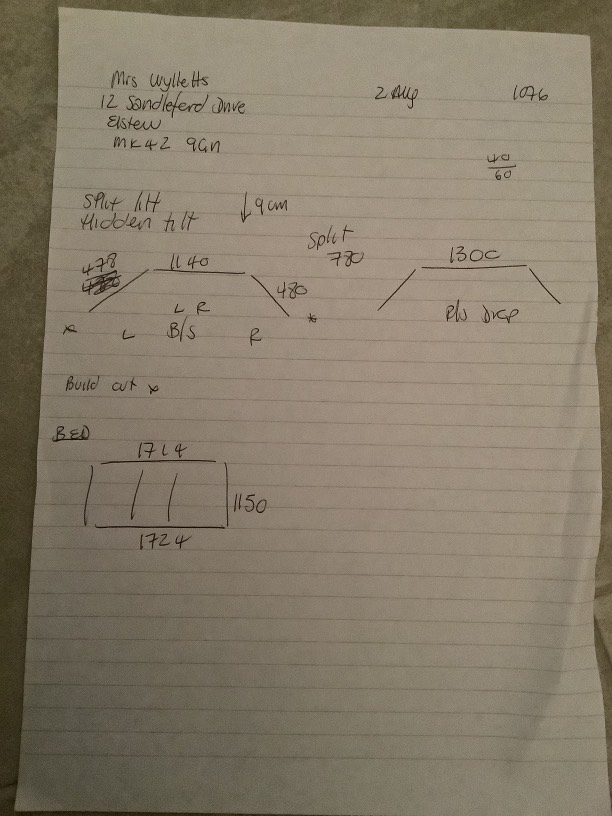 Mrs Wylletts
2 Aug
1076
12 Sandleford Drive
Elstow
MK42 9GN
40
60
Split tilt
Hidden tilt
↓9cm
Split
780
478
1140
480
1300
L R
B/S
P/S Drop
*
L
R
*
Build out *
BED
1714
1150
1724